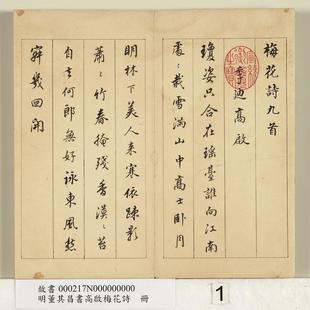 梅花詩九首
季迪高啟
瓊姿只合在瑤臺誰向江南
處〻栽雪滿山中高士卧月
明林下美人来寒依疎影
蕭〻竹春掩殘香漠〻苔
自去何郎無好詠東風愁
寂幾回開
故書 000217N000000000
明董其昌書高啟梅花詩 冊
1